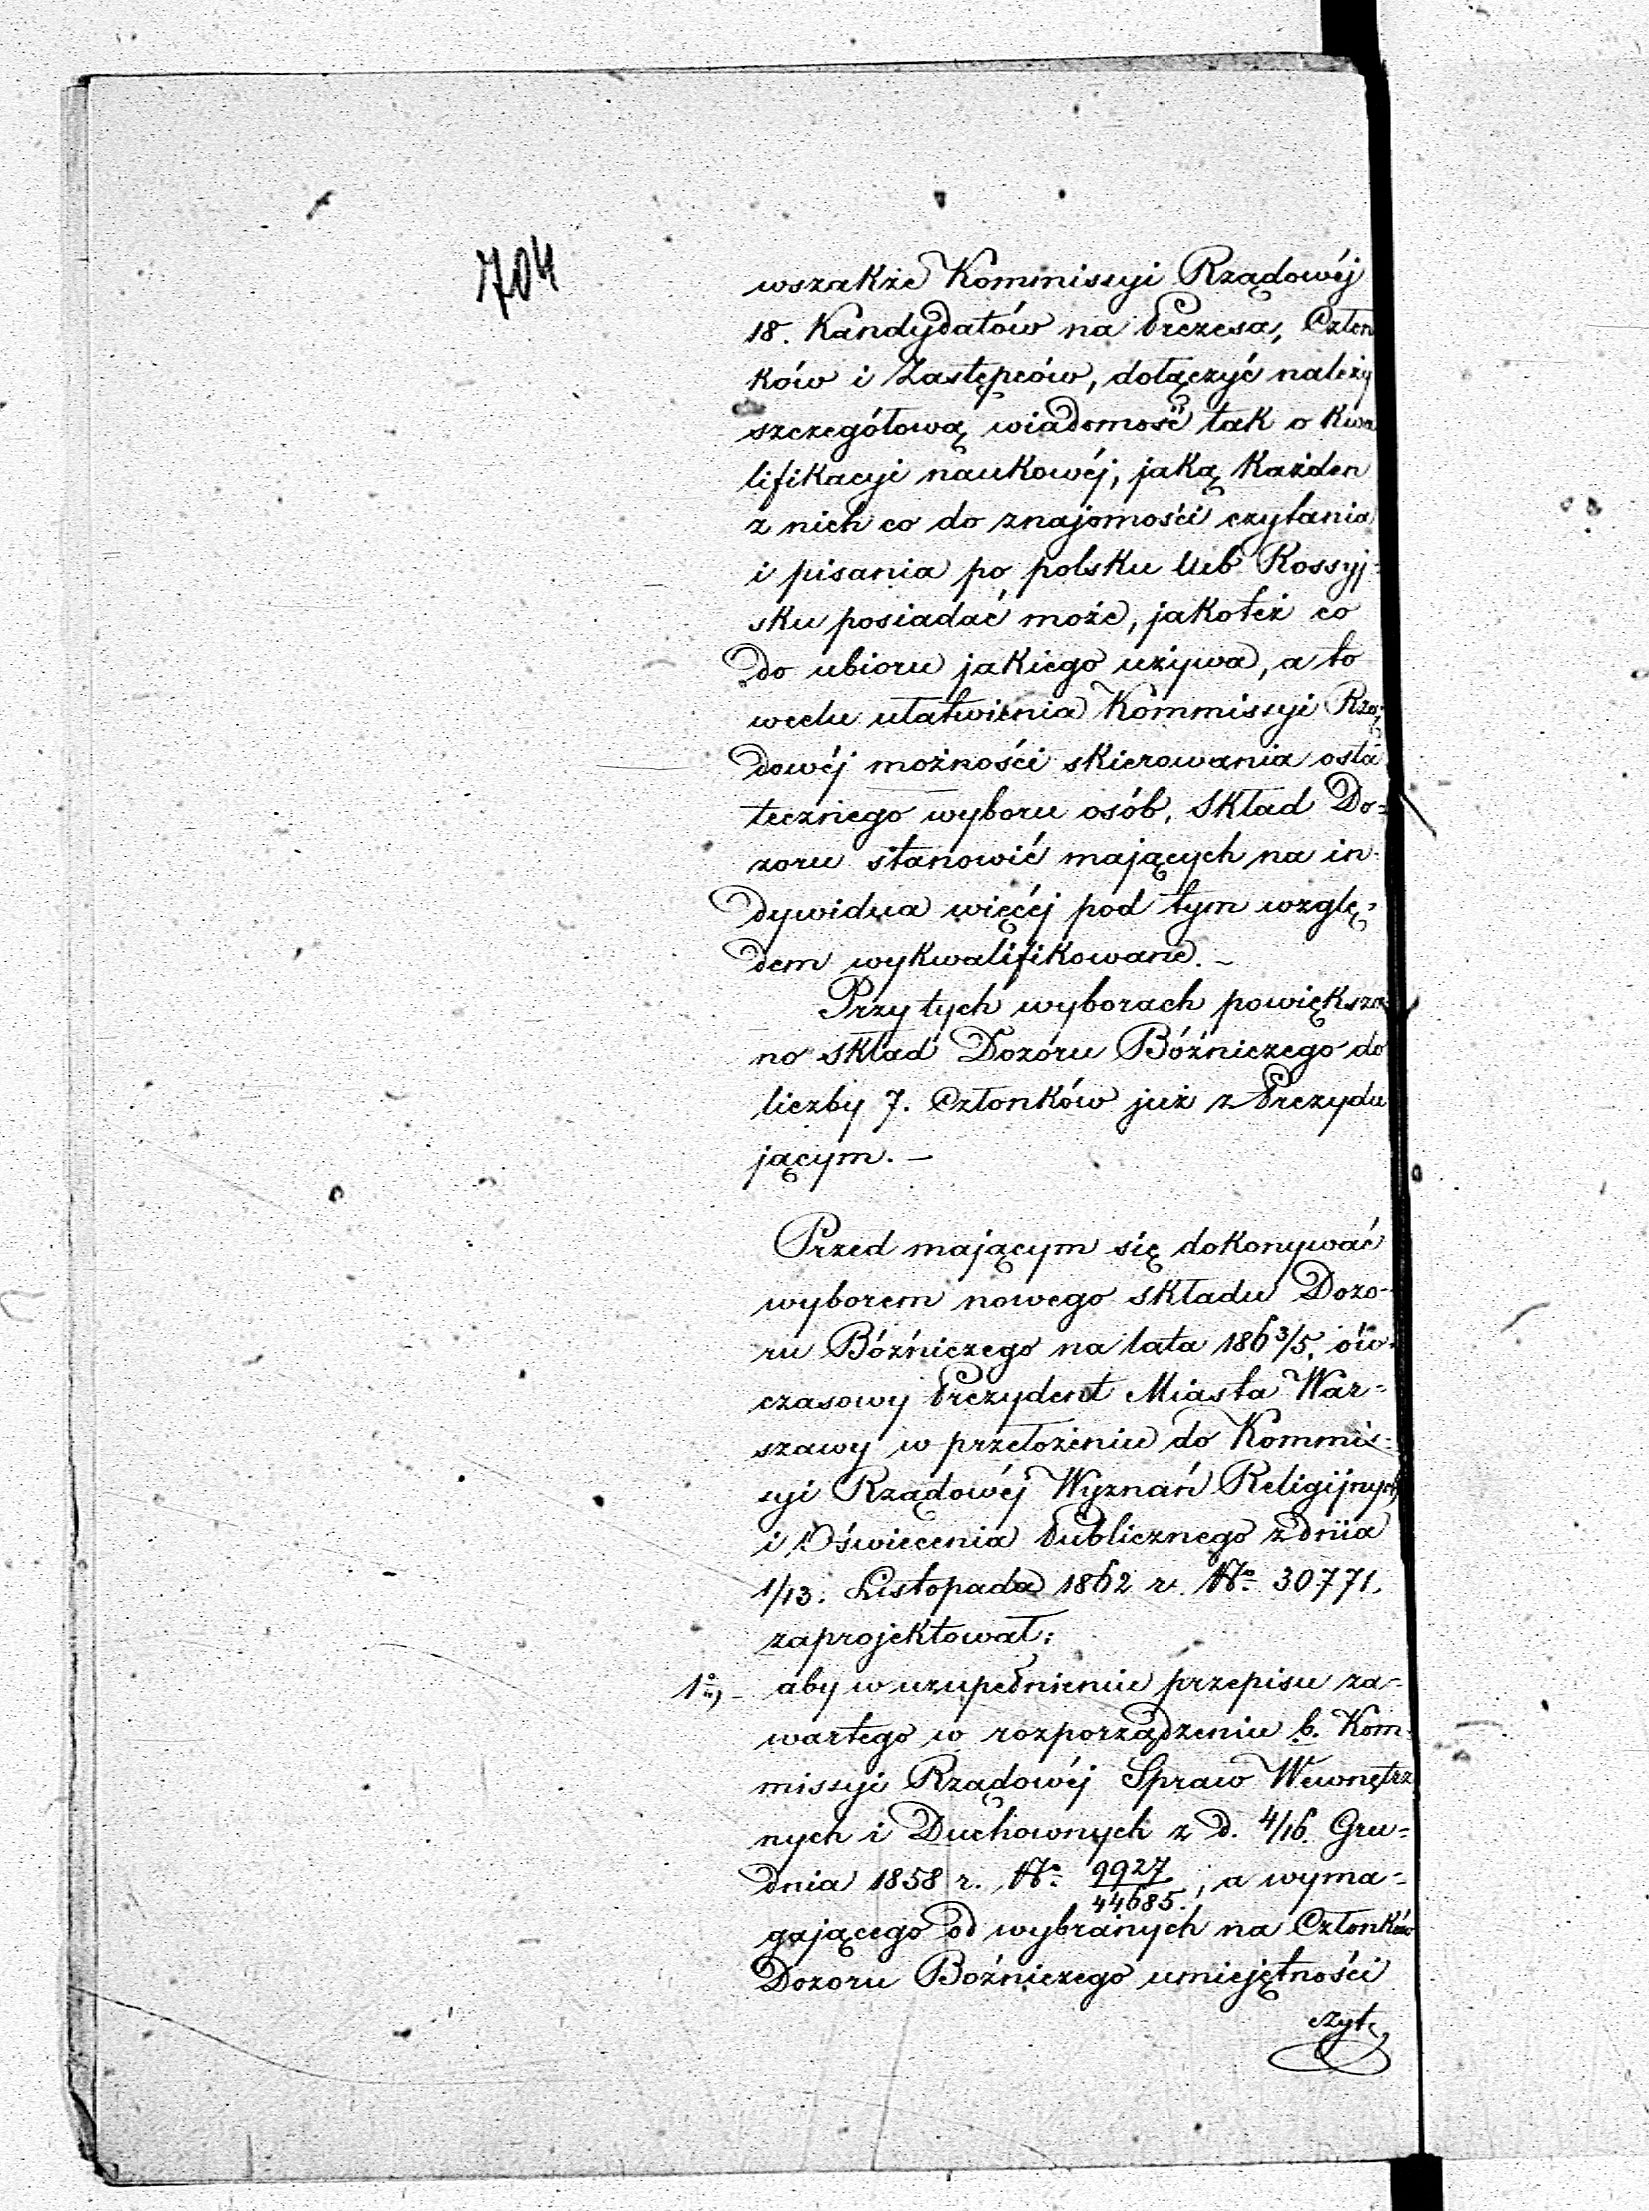 704
wszakże Kommissyi Rządowéj
18. Kandydatów na Prezesa, Człon
ków i Zastępców, dołączyć należy
szczegółową wiadomość tak o kwa
lifikacyi naukowéj, jaką każden
z nich co do znajomości czytania
i pisania po polsku lub Rossyj-
sku posiadać może, jakoteż co
do ubioru jakiego używa, a to
wcelu ułatwienia Kommissyi Rzą-
dowéj możności skierowania osta
tecznego wyboru osób, Skład Do-
zoru stanowić mających na in-
dywidua więcéj pod tym wzglę-
dem wykwalifikowane. –
Przy tych wyborach powiększo
no skład Dozoru Bóźniczego do
liczby 7. Członków już z Prezydu
jącym. –
Przed mającym się dokonywać
wyborem nowego składu Dozo-
ru Bóźniczego na lata 186 3/5, ów-
czasowy Prezydent Miasta War-
szawy w przełożeniu do Kommis-
syi Rządowéj Wyznań Religijnych
i Oświecenia Publicznego z dnia
1/13. Listopada 1862 r. No 30771.
zaprojektował:
1o, – aby w uzupełnieniu przepisu za-
wartego w rozporządzeniu b. Kom-
missyi Rządowéj Spraw Wewnętrz
nych i Duchownych z d. 4/16. Gru-
dnia 1858 r. No 9927/44685., a wyma-
gającego od wybranych na Członków
Dozoru Boźniczego umiejętności
czyt